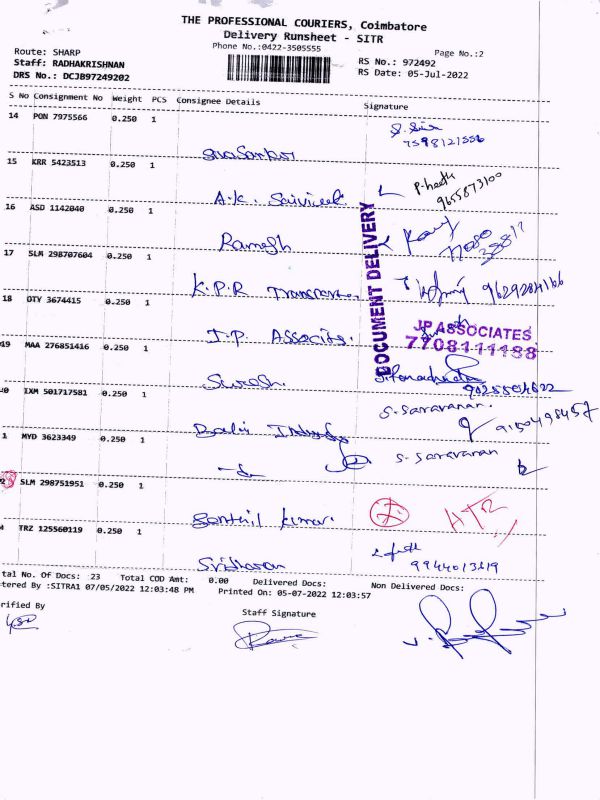 THE PROFESSIONAL COURIERS, Coimbatore
Delivery Runsheet - SITR
Phone No.:0422-3505555
Page No.:2
Route: SHARP
Staff: RADHAKRISHNAN
DRS No.: DCJB97249202
RS No.: 972492
RS Date: 05-Jul-2022
S No Consignment No Weight PCS Consignee Details Signature
14 PON 7975566 0.250 1
7598121556
15 KRR 5423513 0.250 1
A.K.
9655873100
16 ASD 1142040 0.250 1
Ramesh
17 SLM 298707604 0.250 1
K.P.R
9629284166
18 OTY 3674415 0.250 1
J.P. Associts.
DOCUMENT DELIVERY
JP ASSOCIATES
7708111188
19 MAA 276851416 0.250 1
Suresh
0 IXM 501717581 0.250 1
S. Saravanan.
9150498457
1 MYD 3623349 0.250 1
S. Saravanan
SLM 298751951 0.250 1
Senthil Kumar
4 TRZ 125560119 0.250 1
Sridharan
9944013219
tal No. Of Docs: 23 Total COD Amt: 0.00 Delivered Docs: Non Delivered Docs:
tered By :SITRA1 07/05/2022 12:03:48 PM Printed On: 05-07-2022 12:03:57
rified By
Staff Signature